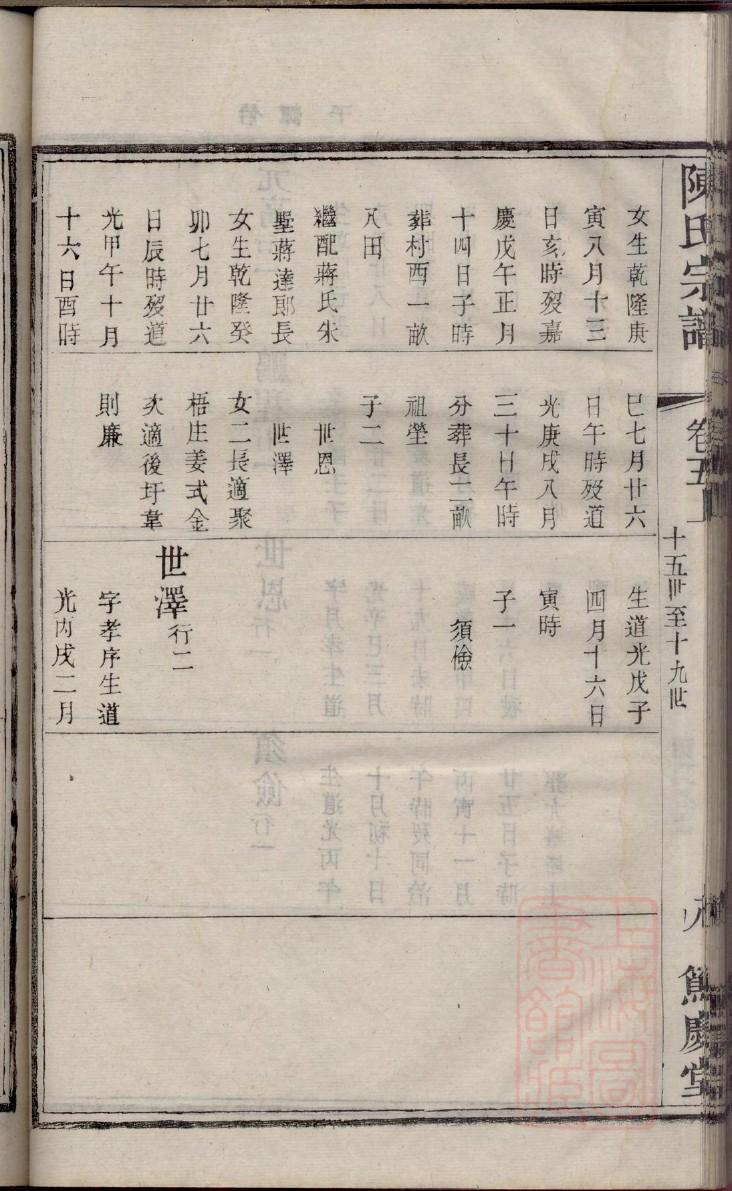 陳氏宗譜
卷五上
十五世至十九世
篤慶堂
女生乾隆庚
寅八月十三
日亥時歿嘉
慶戊午正月
十四日子時
葬村西一畝
八田
繼配蔣氏朱
墅蔣達郎長
女生乾隆癸
卯七月廿六
日辰時歿道
光甲午十月
十六日酉時
巳七月廿六
日午時歿道
光庚戌八月
三十日午時
分葬長二畝
祖塋
子二
世恩
世澤
女二長適聚
梧庄姜式金
次適後圩韋
則廉
生道光戊子
四月十六日
寅時
子一
須儉
世澤行二
字孝序生道
光丙戌二月